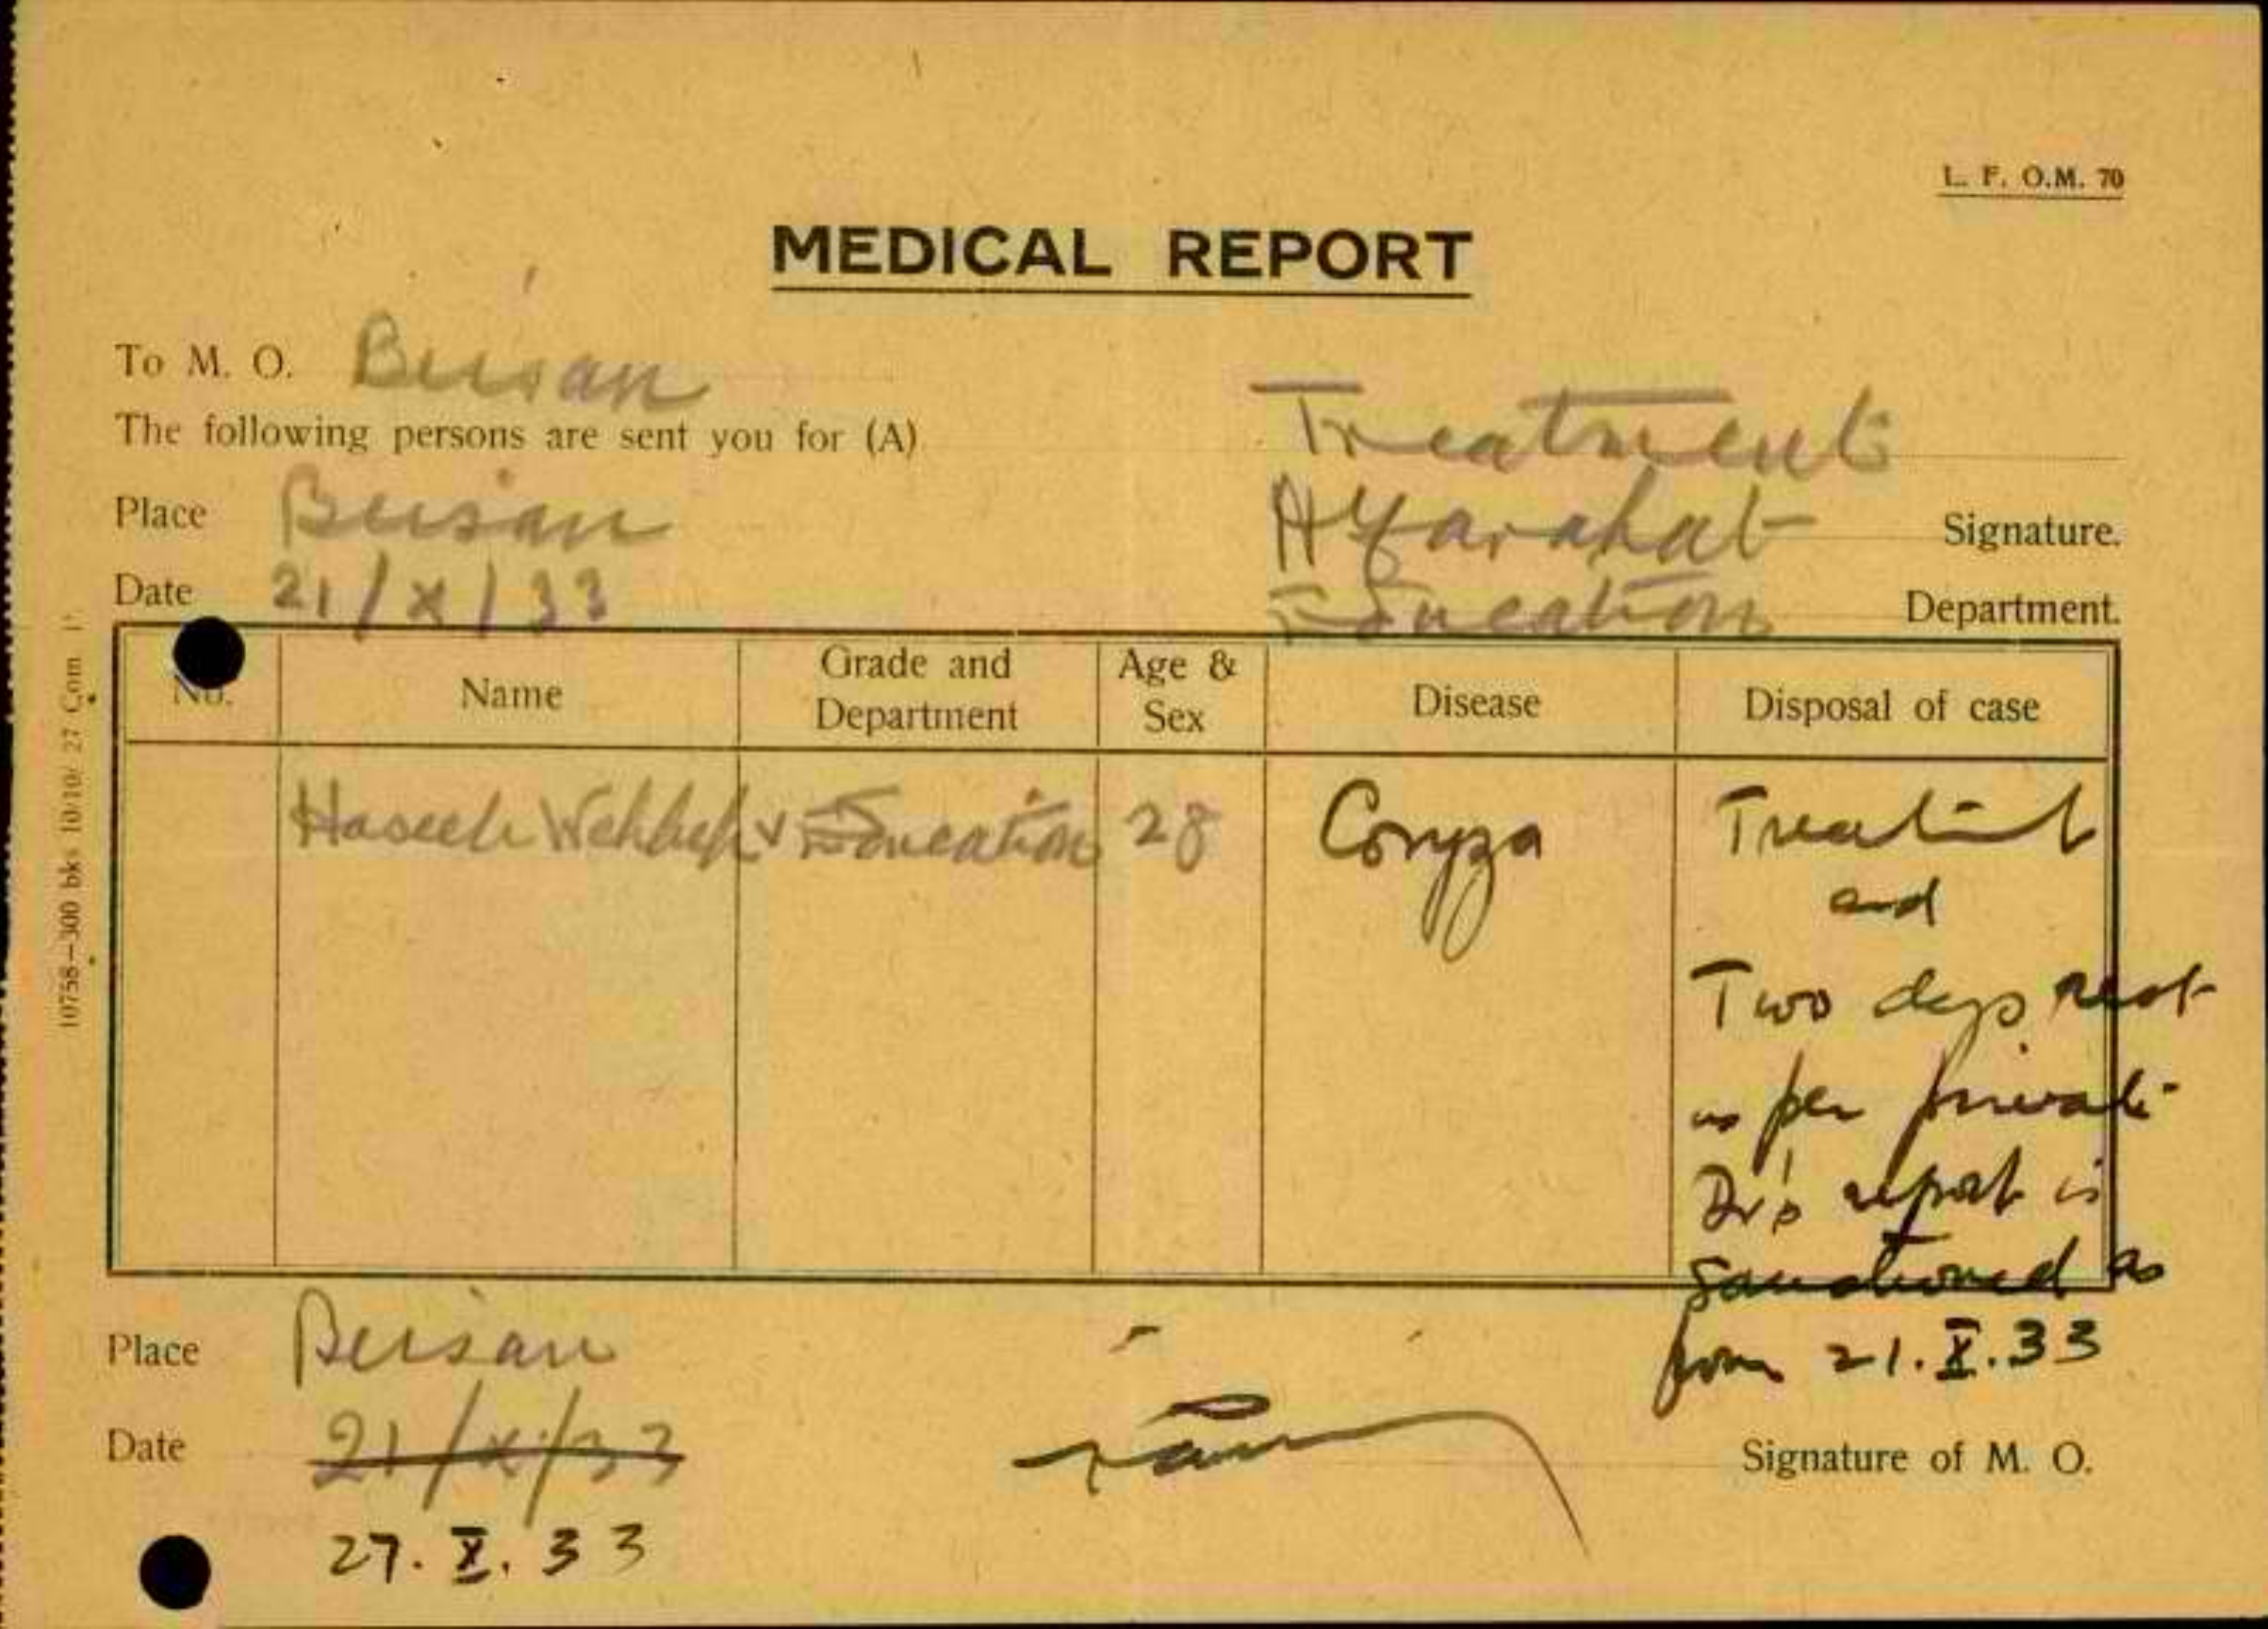 L. F. O.M. 70
MEDICAL REPORT
To M. O. Beisan
The following persons are sent you for (A) Treatment
Place Beisan
Signature.
Date 21/X/33 Education Department.
No. Name Grade and Department Age & Sex Disease Disposal of case
Haseeb Wehbeh Education 28 Coryza Treatment
and
Two days rest
as per private
Dr's report is
sanctioned as
from 21.X.33
Place Beisan
Date 21/X/33
Signature of M. O.
27.X.33
10758—300 bks 10/10/27 Com